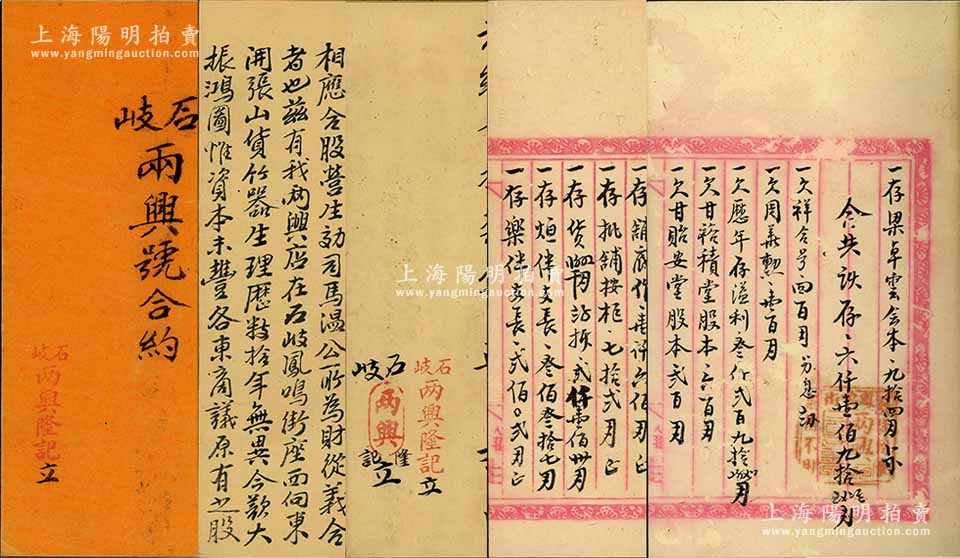 上海陽明拍賣
www.yangmingauction.com
石岐
兩興號合約
石岐
兩興隆記
立
相應合股營生効司馬溫公所為財從義合
者也茲有我兩興店在石岐鳳鳴街座西向東
開張山貨竹器生理歷数拾年無異今歡大
振鴻圖惟資本未豐各東商議原有之股
石岐
兩興隆記
立
石岐
兩興
隆記
立
上海陽明拍賣
www.yangmingauction.com
一存梁卓雲會本
合共該存六仟壹佰九拾
一欠祥合号四百
一欠周義勲壹百
一欠應年存溢利叁仟弍百九拾
一欠甘裕積堂股本六百
一欠甘貽安堂股本弍百
一存舖底作
一存批舖按柜七拾弍
一存货
一存烜伴支長叁佰叁拾七
一存樂伴支長弍佰〇弍
上海陽明拍賣
www.yangmingauction.com
上海陽明拍賣
www.yangmingauction.com